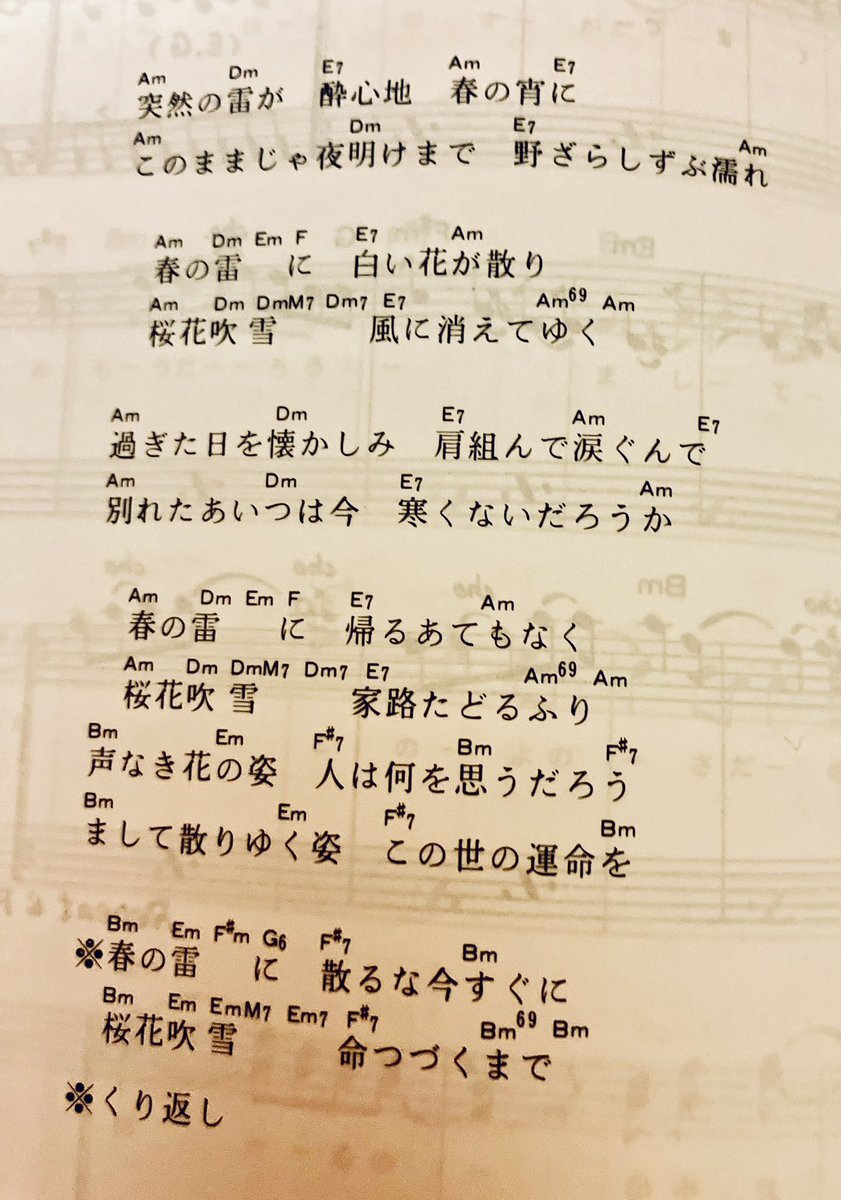 Am Dm E7 Am E7
突然の雷が 酔心地 春の宵に
Am Dm E7 Am
このままじゃ夜明けまで 野ざらしずぶ濡れ
Am Dm Em F E7 Am
春の雷に 白い花が散り
Am Dm DmM7 Dm7 E7 Am69 Am
桜花吹雪 風に消えてゆく
Am Dm E7 Am E7
過ぎた日を懐かしみ 肩組んで涙ぐんで
Am Dm E7 Am
別れたあいつは今 寒くないだろうか
Am Dm Em F E7 Am
春の雷に 帰るあてもなく
Am Dm DmM7 Dm7 E7 Am69 Am
桜花吹雪 家路たどるふり
Bm Em F#7 Bm F#7
声なき花の姿 人は何を思うだろう
Bm Em F#7 Bm
まして散りゆく姿 この世の運命を
Bm Em F#m G6 F#7 Bm
※春の雷に 散るな今すぐに
Bm Em EmM7 Em7 F#7 Bm69 Bm
桜花吹雪 命つづくまで
※くり返し